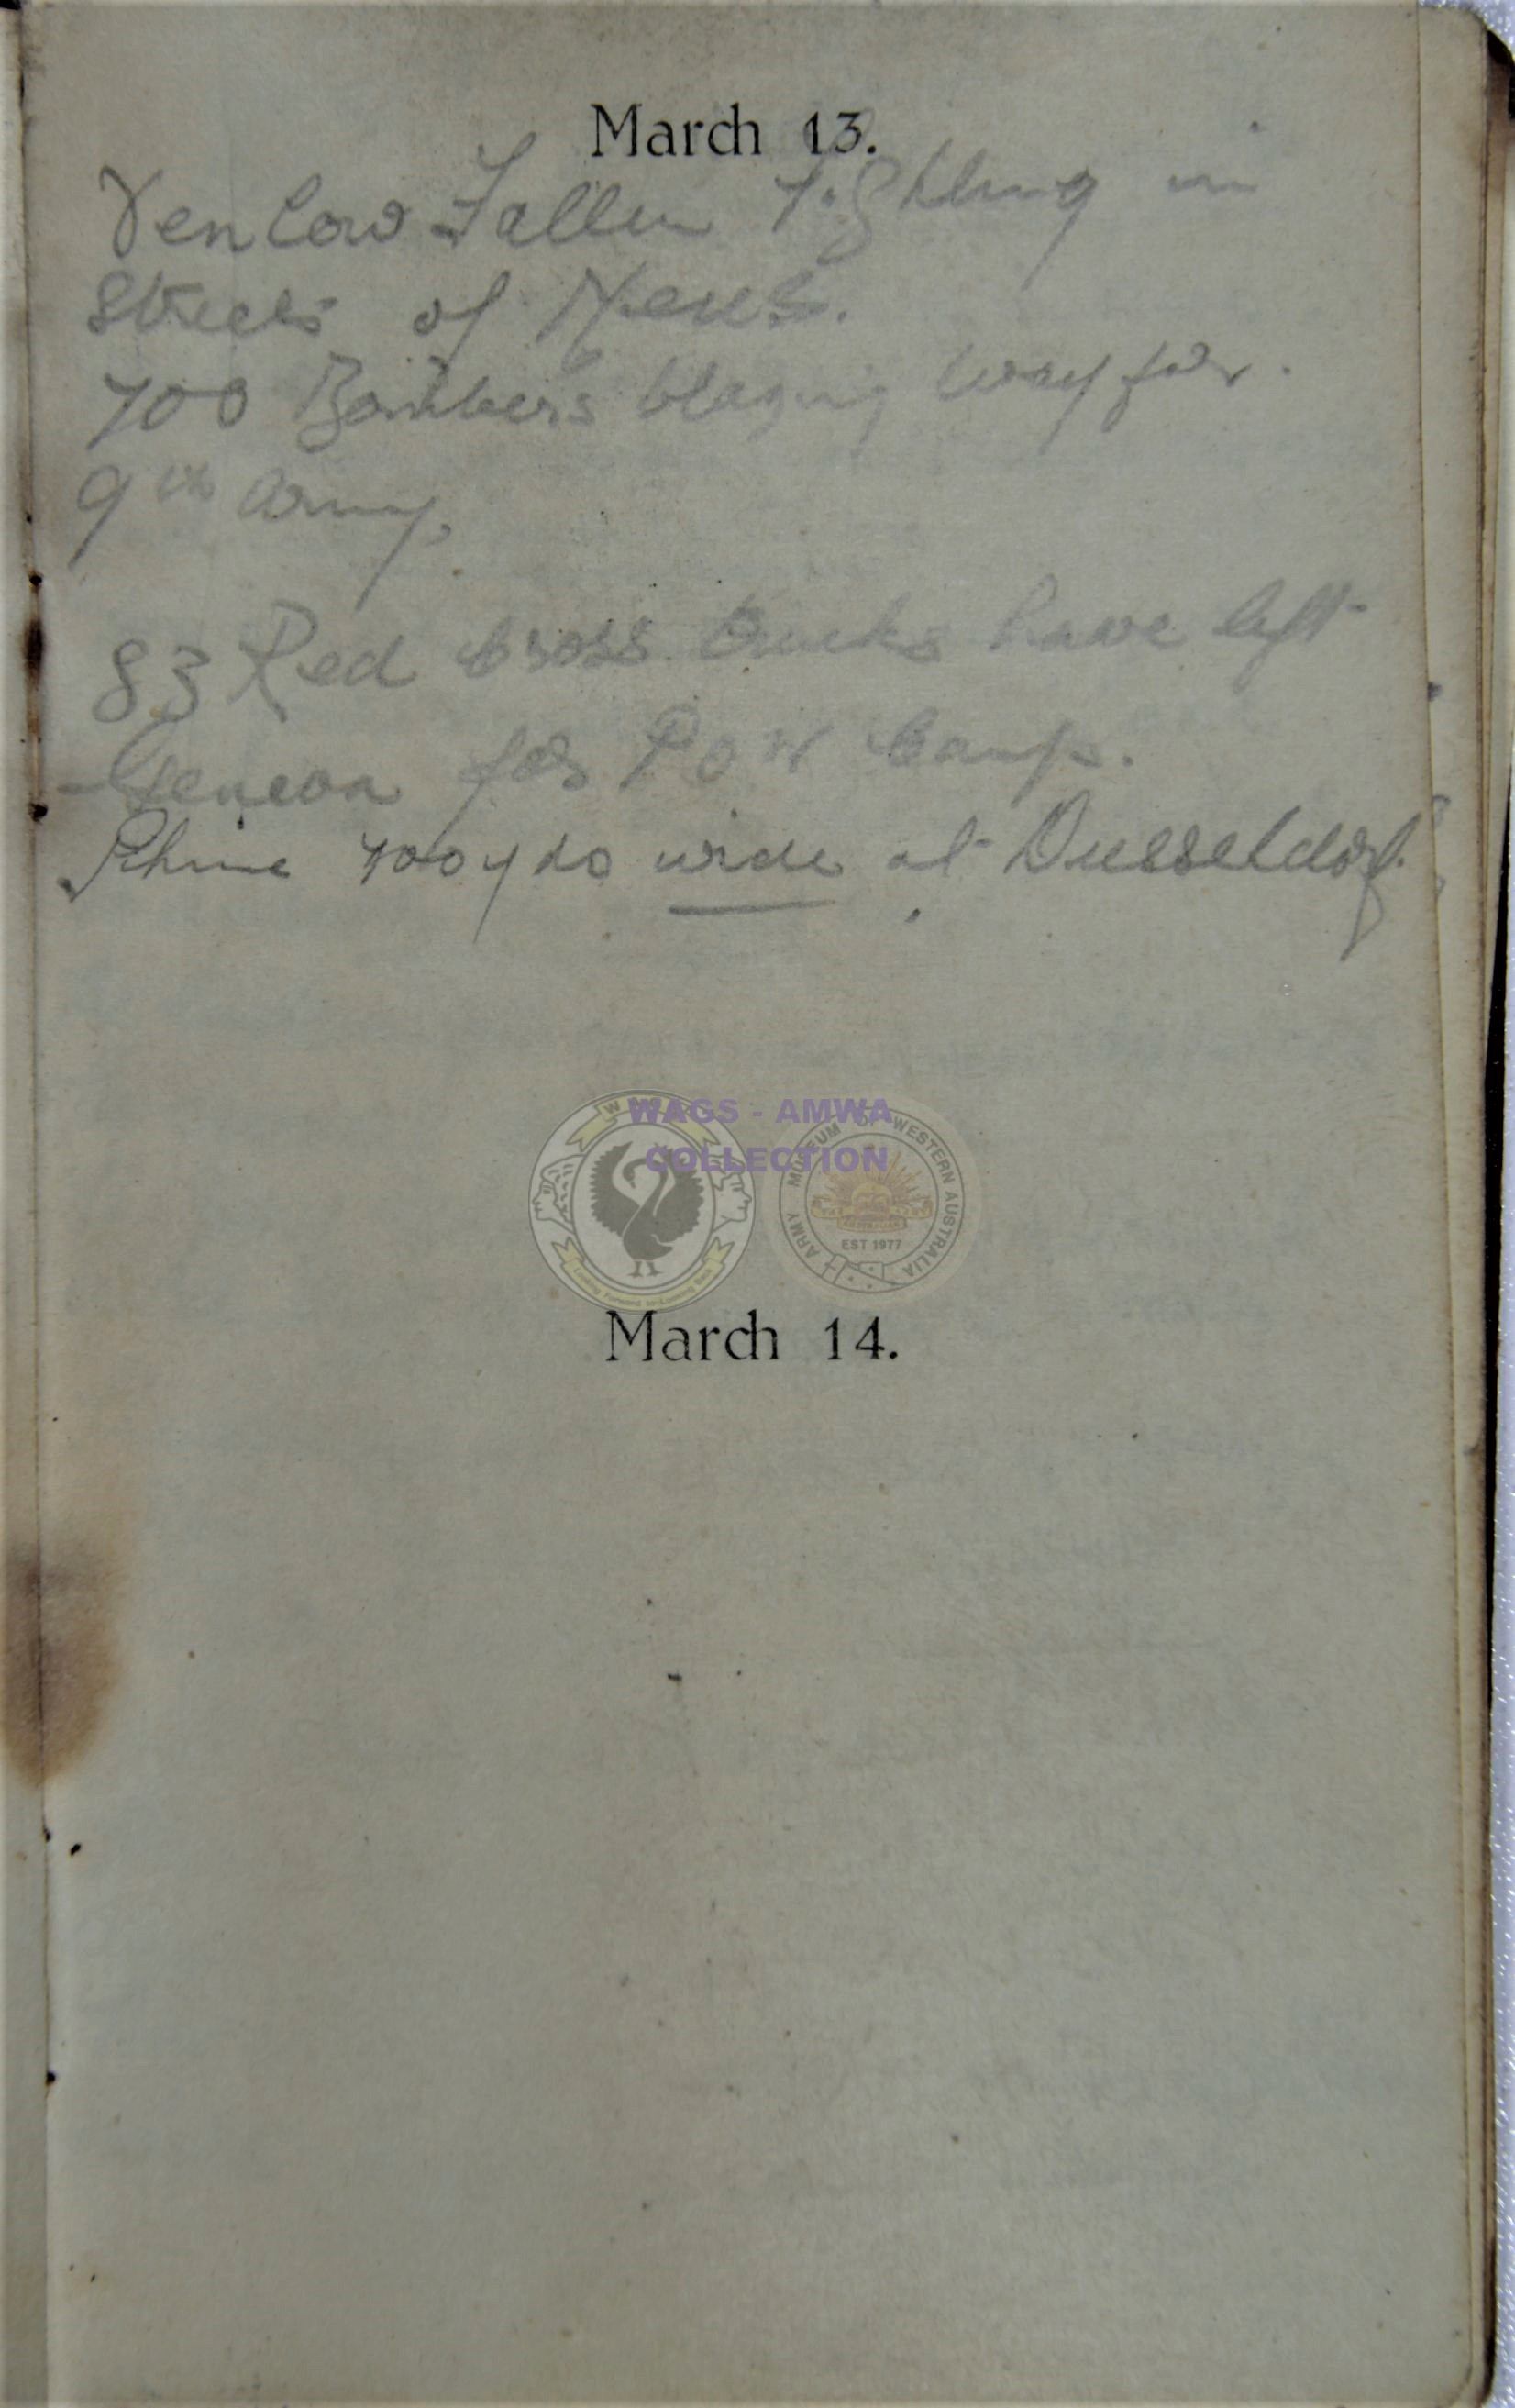 March 13.
Venlow Fallen Fighting in
Streets of Neuss.
700 Bombers blazing way for.
9th Army.
83 Red Cross trucks have left
Geneva for POW Camps.
Rhine 400 yds wide at Dusseldorf.
WAGS - AMWA
COLLECTION
ARMY MUSEUM OF WESTERN AUSTRALIA
EST 1977
March 14.